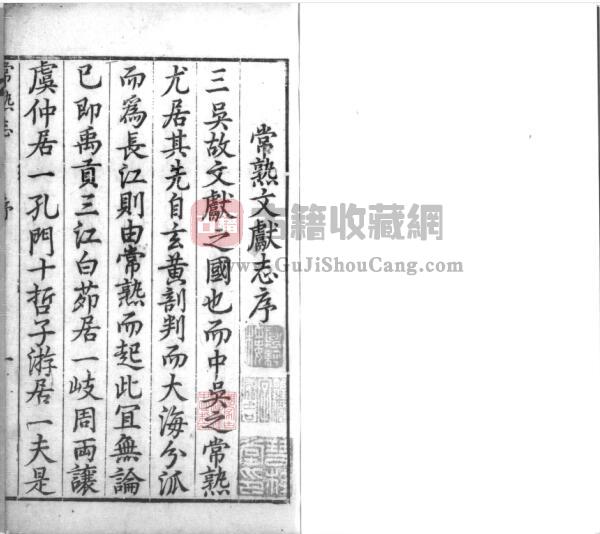 常熟文獻志序
三吳故文獻之國也而中吳之常熟
尤居其先自玄黄剖判而大海分派
而爲長江則由常熟而起此冝無論
已即禹貢三江白茆居一岐周兩讓
虞仲居一孔門十哲子游居一夫是
常熟志 序 一
古籍收藏網
www.GuJiShouCang.com